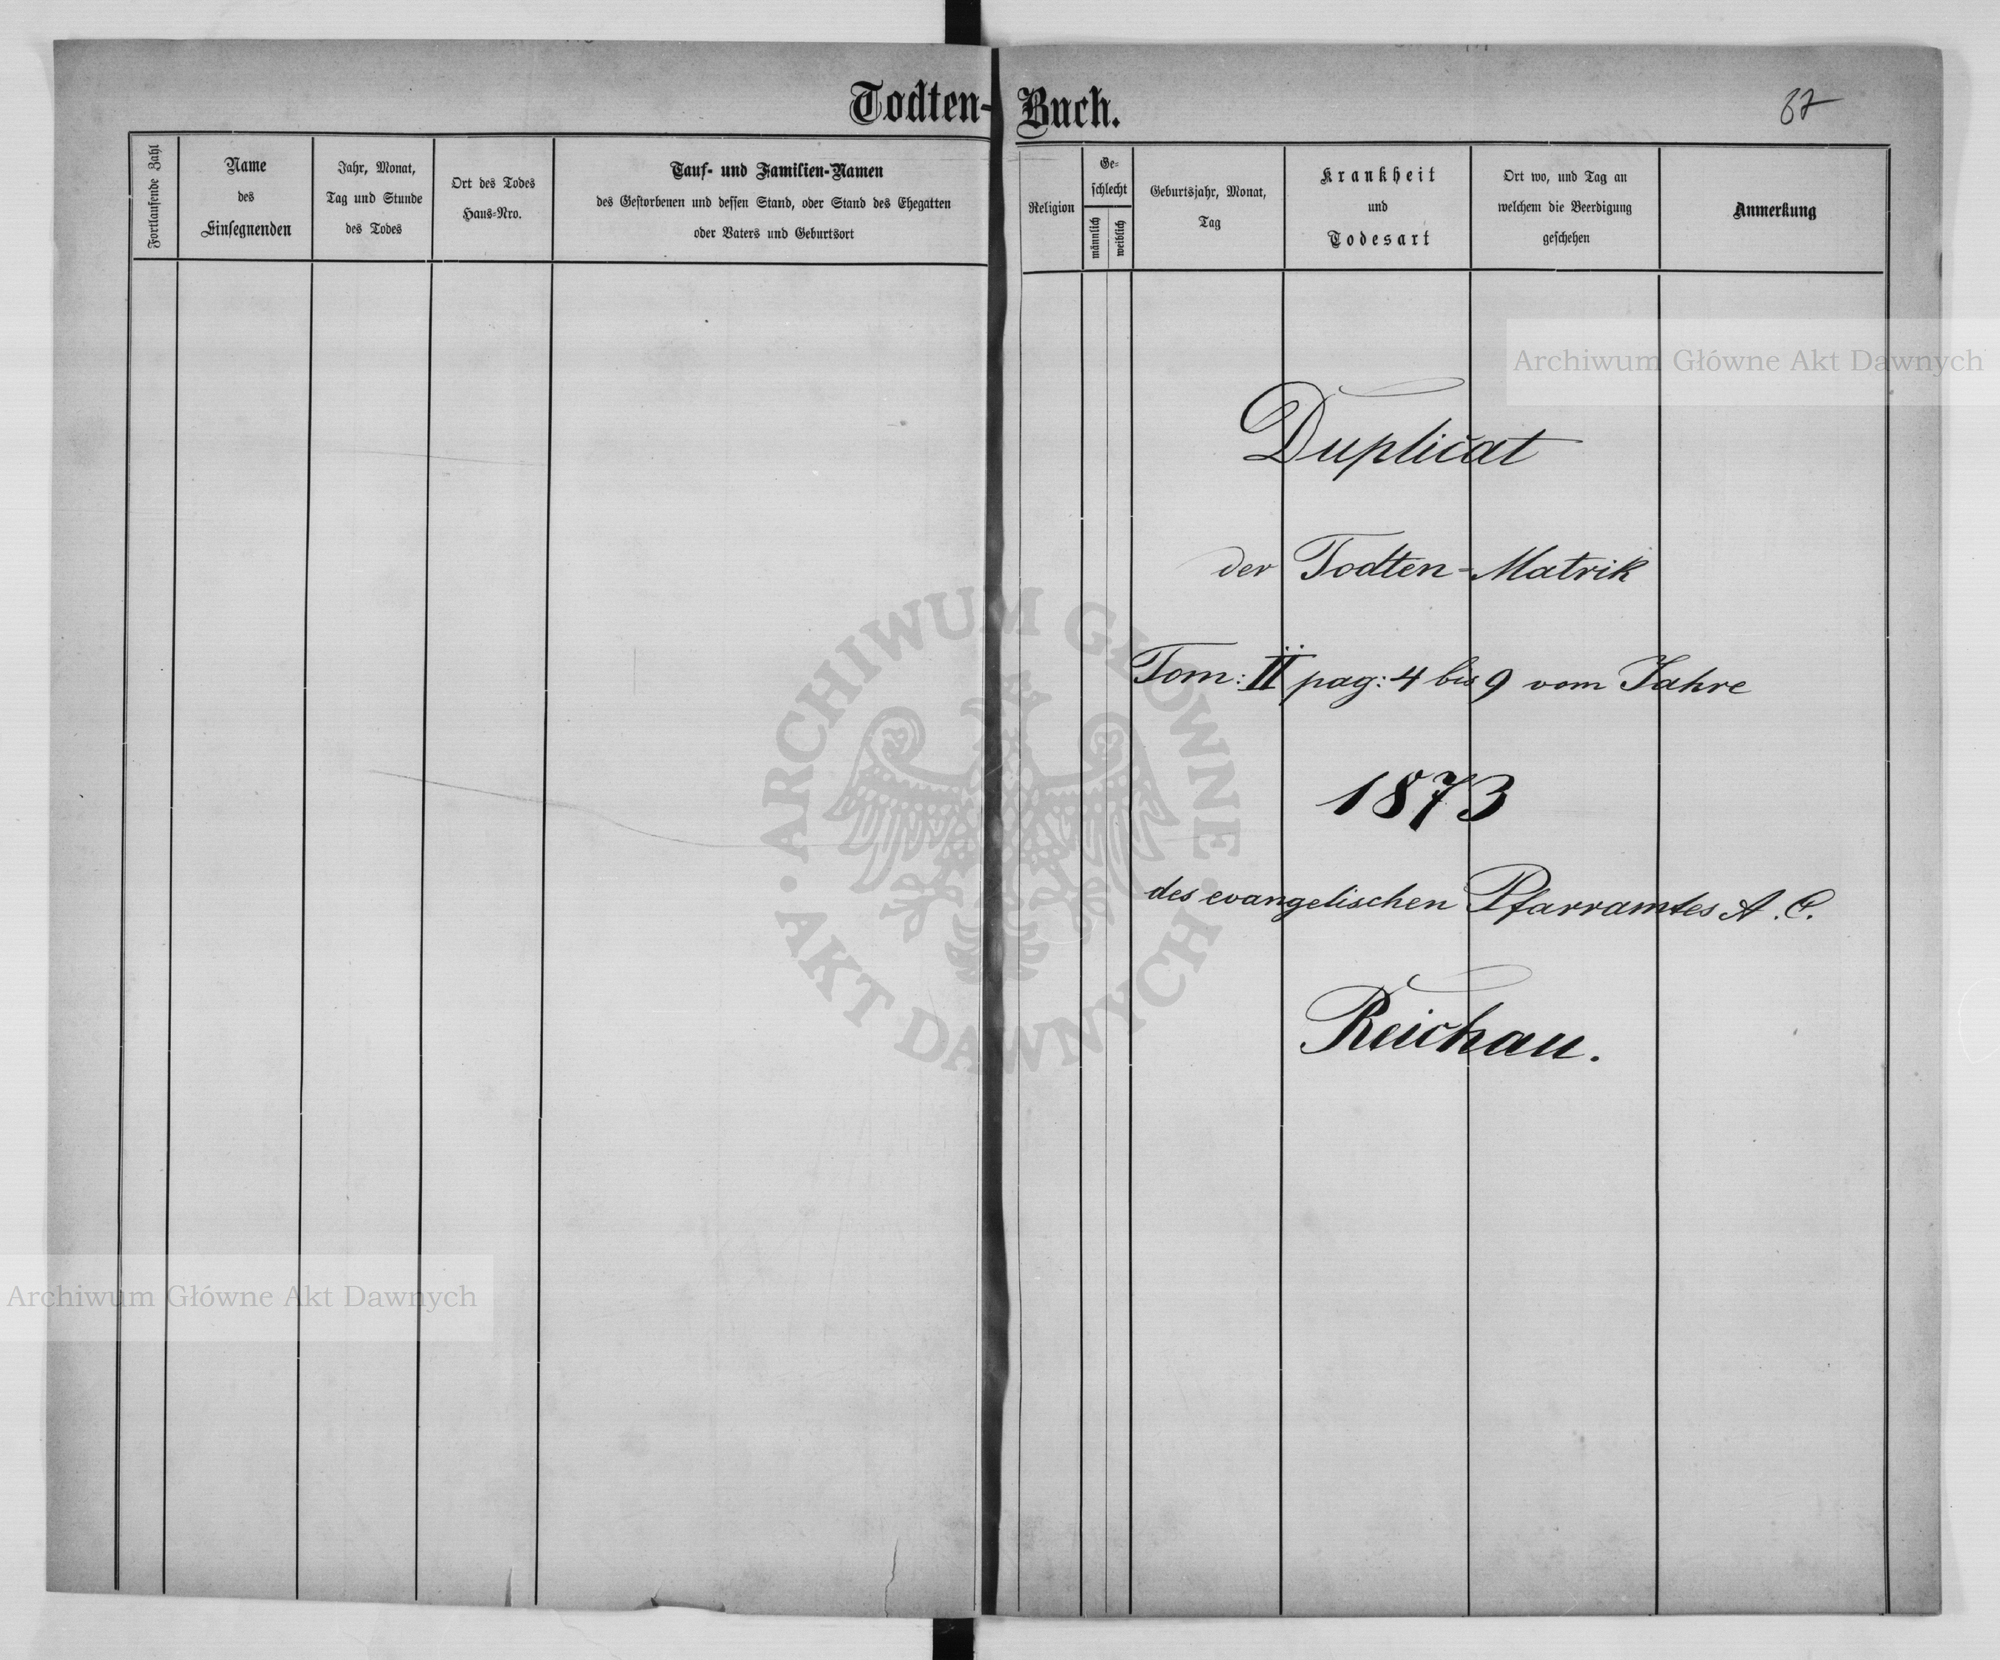 Todten-Buch.
87
Fortlaufende Zahl
Name
des
Einsegnenden
Jahr, Monat,
Tag und Stunde
des Todes
Ort des Todes
Haus-Nro.
Tauf- und Familien-Namen
des Gestorbenen und dessen Stand, oder Stand des Ehegatten
oder Vaters und Geburtsort
Religion
Ge-
schlecht
männlich
weiblich
Geburtsjahr, Monat,
Tag
Krankheit
und
Todesart
Ort wo, und Tag an
welchem die Beerdigung
geschehen
Anmerkung
Archiwum Główne Akt Dawnych
Duplicat
der Todten-Matrik
Tom: II pag: 4 bis 9 vom Jahre
1873
des evangelischen Pfarramtes A. C.
Reichau.
ARCHIWUM GŁÓWNE · AKT DAWNYCH ·
Archiwum Główne Akt Dawnych